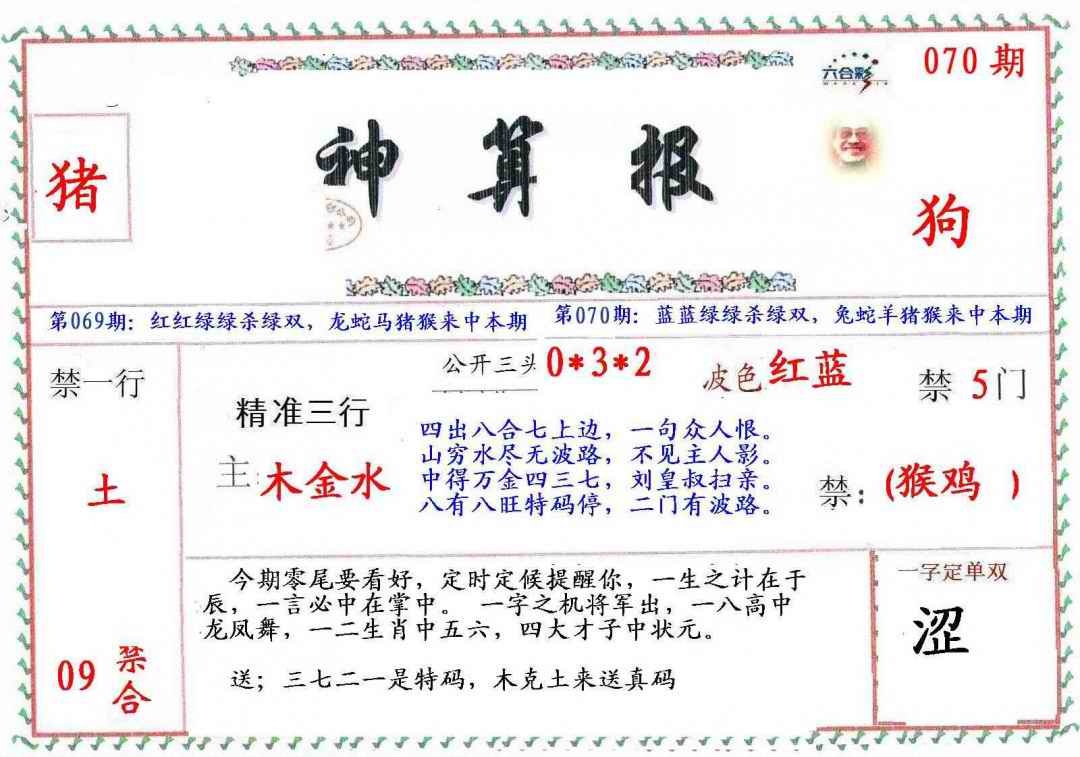 070 期
六合彩
神 算 报
猪
狗
第069期：红红绿绿杀绿双，龙蛇马猪猴来中本期
第070期：蓝蓝绿绿杀绿双，兔蛇羊猪猴来中本期
禁一行
土
09 禁合
公开三头 0*3*2
波色 红蓝
禁 5门
精准三行
主: 木金水
四出八合七上边，一句众人恨。
山穷水尽无波路，不见主人影。
中得万金四三七，刘皇叔扫亲。
八有八旺特码停，二门有波路。
禁：(猴鸡 )
今期零尾要看好，定时定候提醒你，一生之计在于
辰，一言必中在掌中。 一字之机将军出，一八高中
龙凤舞，一二生肖中五六，四大才子中状元。
送；三七二一是特码，木克土来送真码
一字定单双
涩